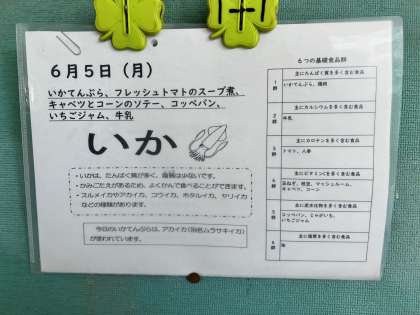 6月5日（月）
いかてんぷら、フレッシュトマトのスープ煮、
キャベツとコーンのソテー、コッペパン、
いちごジャム、牛乳
いか
・いかは、たんぱく質が多く、脂肪は少ないです。
・かみごたえがあるため、よくかんで食べることができます。
・スルメイカやアカイカ、コウイカ、ホタルイカ、ヤリイカ
などの種類があります。
今日のいかてんぷらは、アカイカ（別名ムラサキイカ）
が使われています。
6つの基礎食品群
1群
主にたんぱく質を多く含む食品
いかてんぷら、鶏肉
2群
主にカルシウムを多く含む食品
牛乳
3群
主にカロテンを多く含む食品
トマト、人参
4群
主にビタミンCを多く含む食品
玉ねぎ、枝豆、マッシュルーム、
キャベツ、コーン
5群
主に炭水化物を多く含む食品
コッペパン、じゃがいも、
いちごジャム
6群
主に脂質を多く含む食品
油